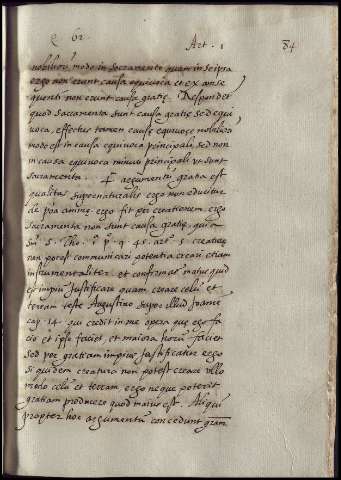 q 62 Art. 1 84
nobiliori modo in sacramento quam in se ipsa
ergo non erunt causa equivoca et ex conse
quenti non erunt causa gratię. Respondet
quod sacramenta sunt causa gratię sed equi
voca, effectus tamen causę equivocę nobiliori
modo est in causa equivoca principali, sed non
in causa equivoca minus principali ut sunt
sacramenta. argumentū gratia est
qualitas supernaturalis ergo non educitur
de pōa animę ergo fit per creationem, ergo
sacramenta non sunt causa gratię, quia
Sm S. Tho. i p q 45. art. 5 creatięe
non potest communicari potentia creandi etiam
instrumentaliter. et confirmat maius quid
est impiū justificare quam creare celū et
terram teste Augustino super illud Joannis
cap 14. qui credit in me opera que ego fa
cio et ipse faciet, et maiora horū faciet
sed per gratiam impius justificatur ergo
si quidem creatura non potest creare ullo
modo celū et terram ergo neque poterit
gratiam producere quod maius est. Aliqui
propter hoc argumentū concedunt gratiam